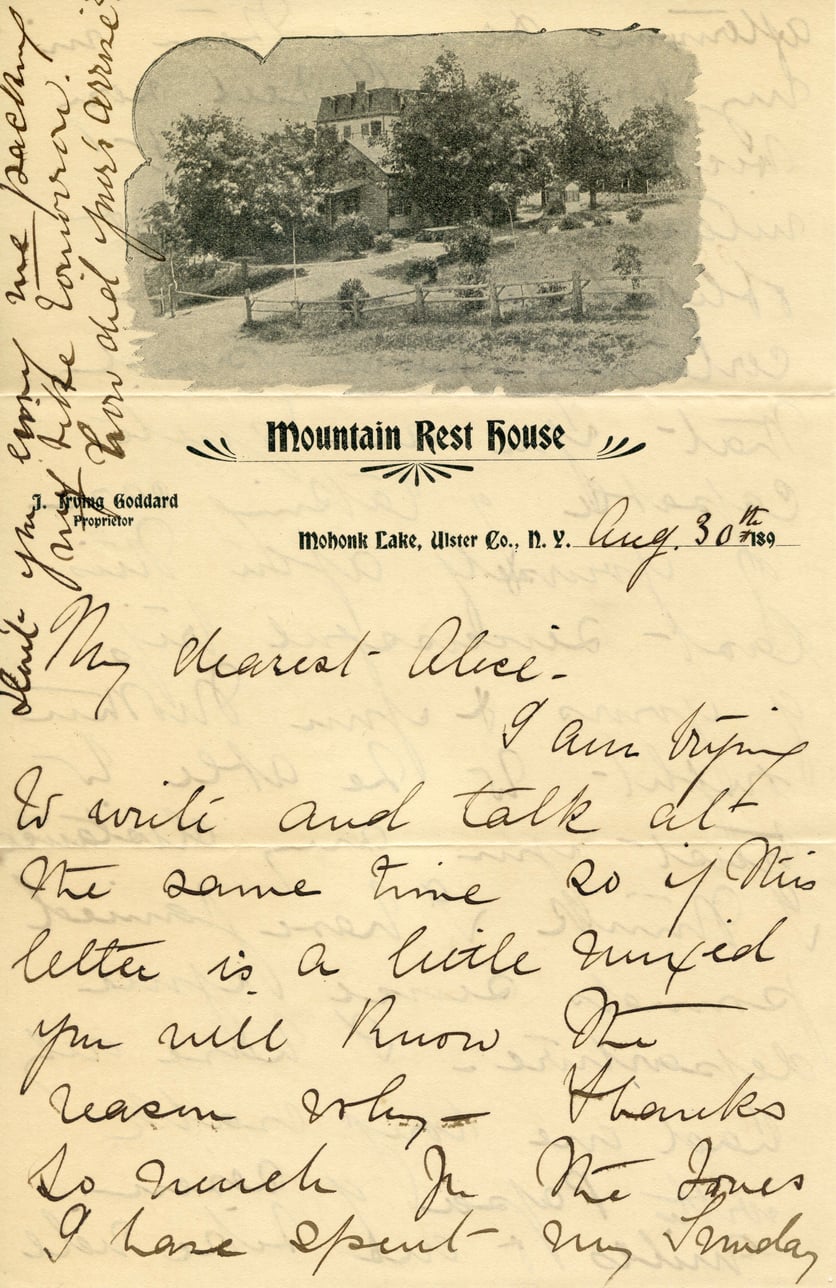 Mountain Rest House
J. Irving Goddard
Proprietor
Mohonk Lake, Ulster Co., N. Y. Aug. 30th 189
My dearest Alice -
I am trying
to write and talk at
the same time so if this
letter is a little mixed
you will know the
reason why - Thanks
so much for the Jones
I have spent my Sunday
Don't you envy me packing
my tomorrow.
How did yours arrive